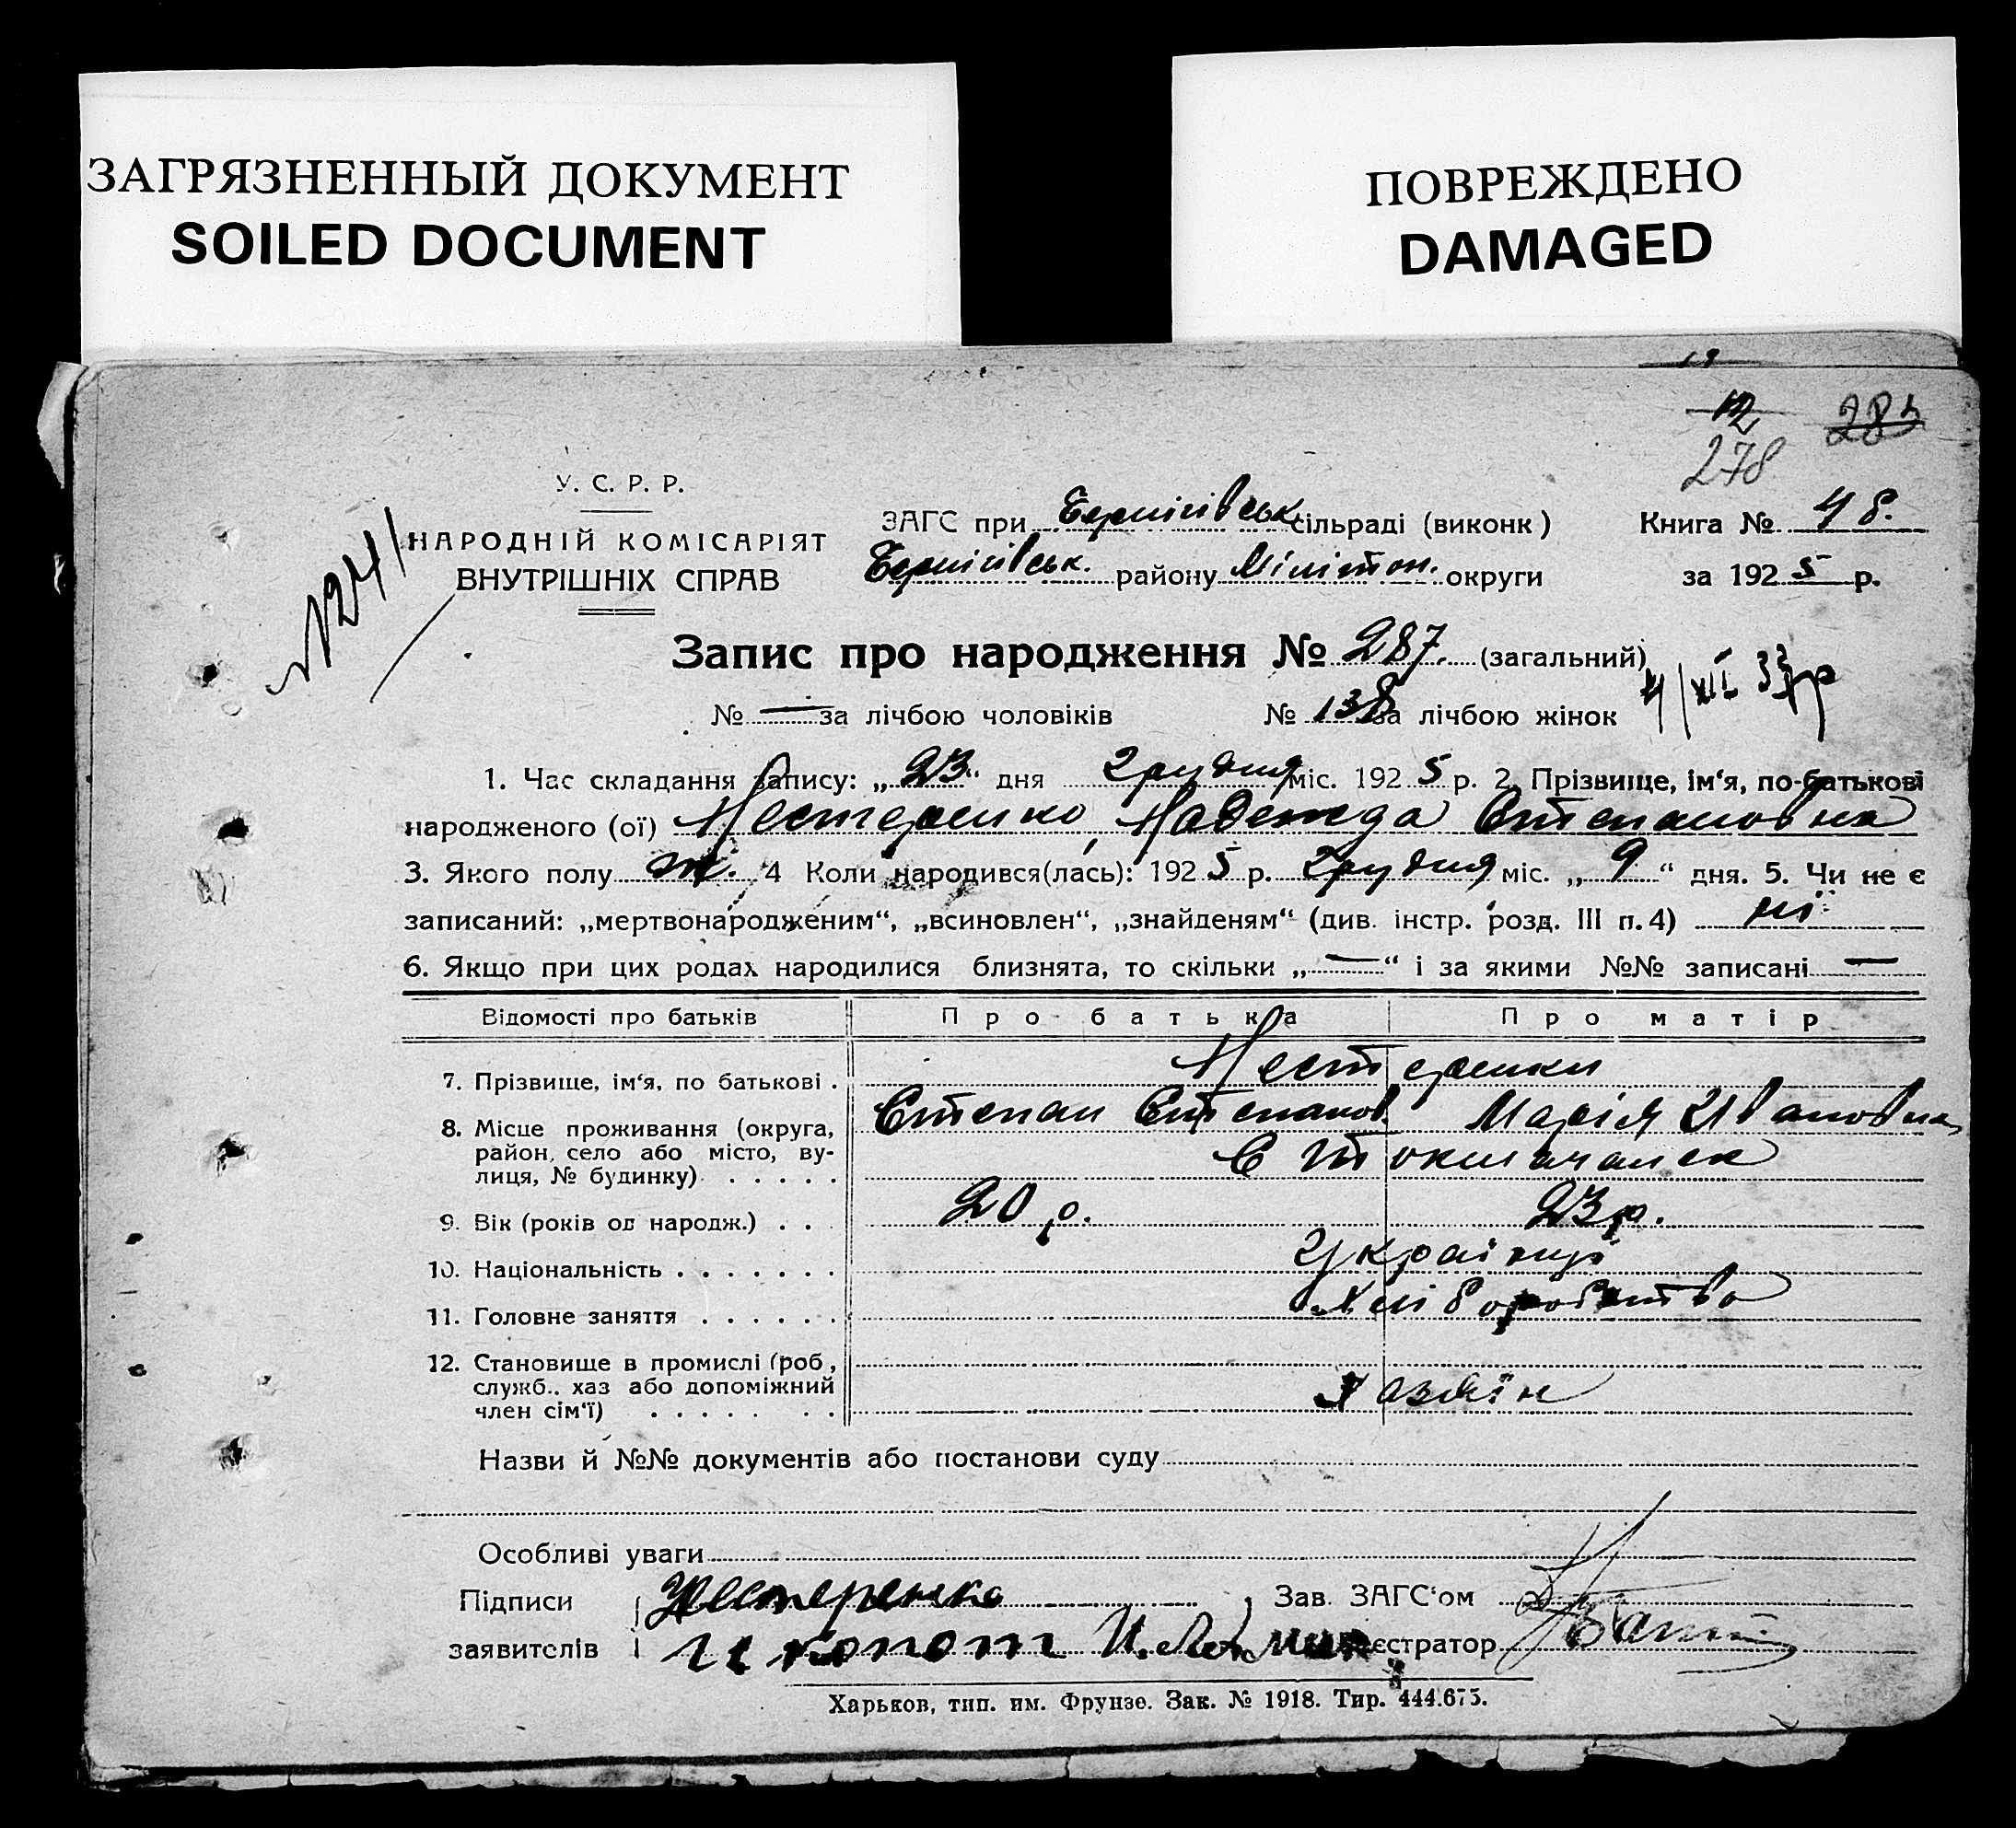 ЗАГРЯЗНЕННЫЙ ДОКУМЕНТ
SOILED DOCUMENT
ПОВРЕЖДЕНО
DAMAGED
19
12 285
278
У. С. Р. Р.
НАРОДНІЙ КОМІСАРІЯТ
ВНУТРІШНІХ СПРАВ
№ 241
ЗАГС при Бернісівськ сільраді (виконк) Книга № 48.
Бернісівськ. району Мілітоп. округи за 1925 р.
Запис про народження № 287. (загальний)
4/XII 33 р
№ — за лічбою чоловіків № 138 за лічбою жінок
1. Час складання запису: „23“ дня грудня міс. 1925 р. 2. Прізвище, ім‘я, по-батькові
народженого (ої) Нестеренко, Надежда Степановна
3. Якого полу ж. 4 Коли народився(лась): 1925 р. грудня міс. „9“ дня. 5. Чи не є
записаний: „мертвонародженим“, „всиновлен“, „знайденям“ (див. інстр. розд. III п. 4) ні
6. Якщо при цих родах народилися близнята, то скільки „—“ і за якими №№ записані —
Відомості про батьків Про батька Про матір
7. Прізвище, ім‘я, по батькові . Нестеренки
Степан Степанов. Марія Ивановна
8. Місце проживання (округа,
район, село або місто, ву-
лиця, № будинку) . . . . . С Токмачанск
9. Вік (років од народж.) . . 20 р. 23 р.
10. Національність . . . . . . . Українці
11. Головне заняття . . . . . . Хліборобство
12. Становище в промислі (роб,
служб., хаз або допоміжний
член сім‘ї) . . . . . . . Хазяїн
Назви й №№ документів або постанови суду
Особливі уваги
Підписи Нестеренко Зав. ЗАГС‘ом
заявителів
Харьков, тип. им. Фрунзе. Зак. № 1918. Тир. 444.675.